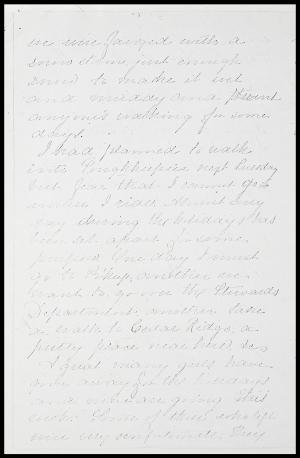 we were favored with a
snow storm, just enough
snow to make it wet
and muddy and prevent
anyone's walking for some
days.
I had planned to walk
into Poughkeepsie next Tuesday
but fear that I cannot go
unless I ride. Almost every
day during the holidays has
been set apart for some
purpose. One day I must
go to, another we
want to go over the Stewards
Department, another take
a walk to Cedar Ridge, a
pretty place near here, &c.
A great many girls have
gone away for the holidays
and more are going this
week. Some of those who left
were very unfortunate. They